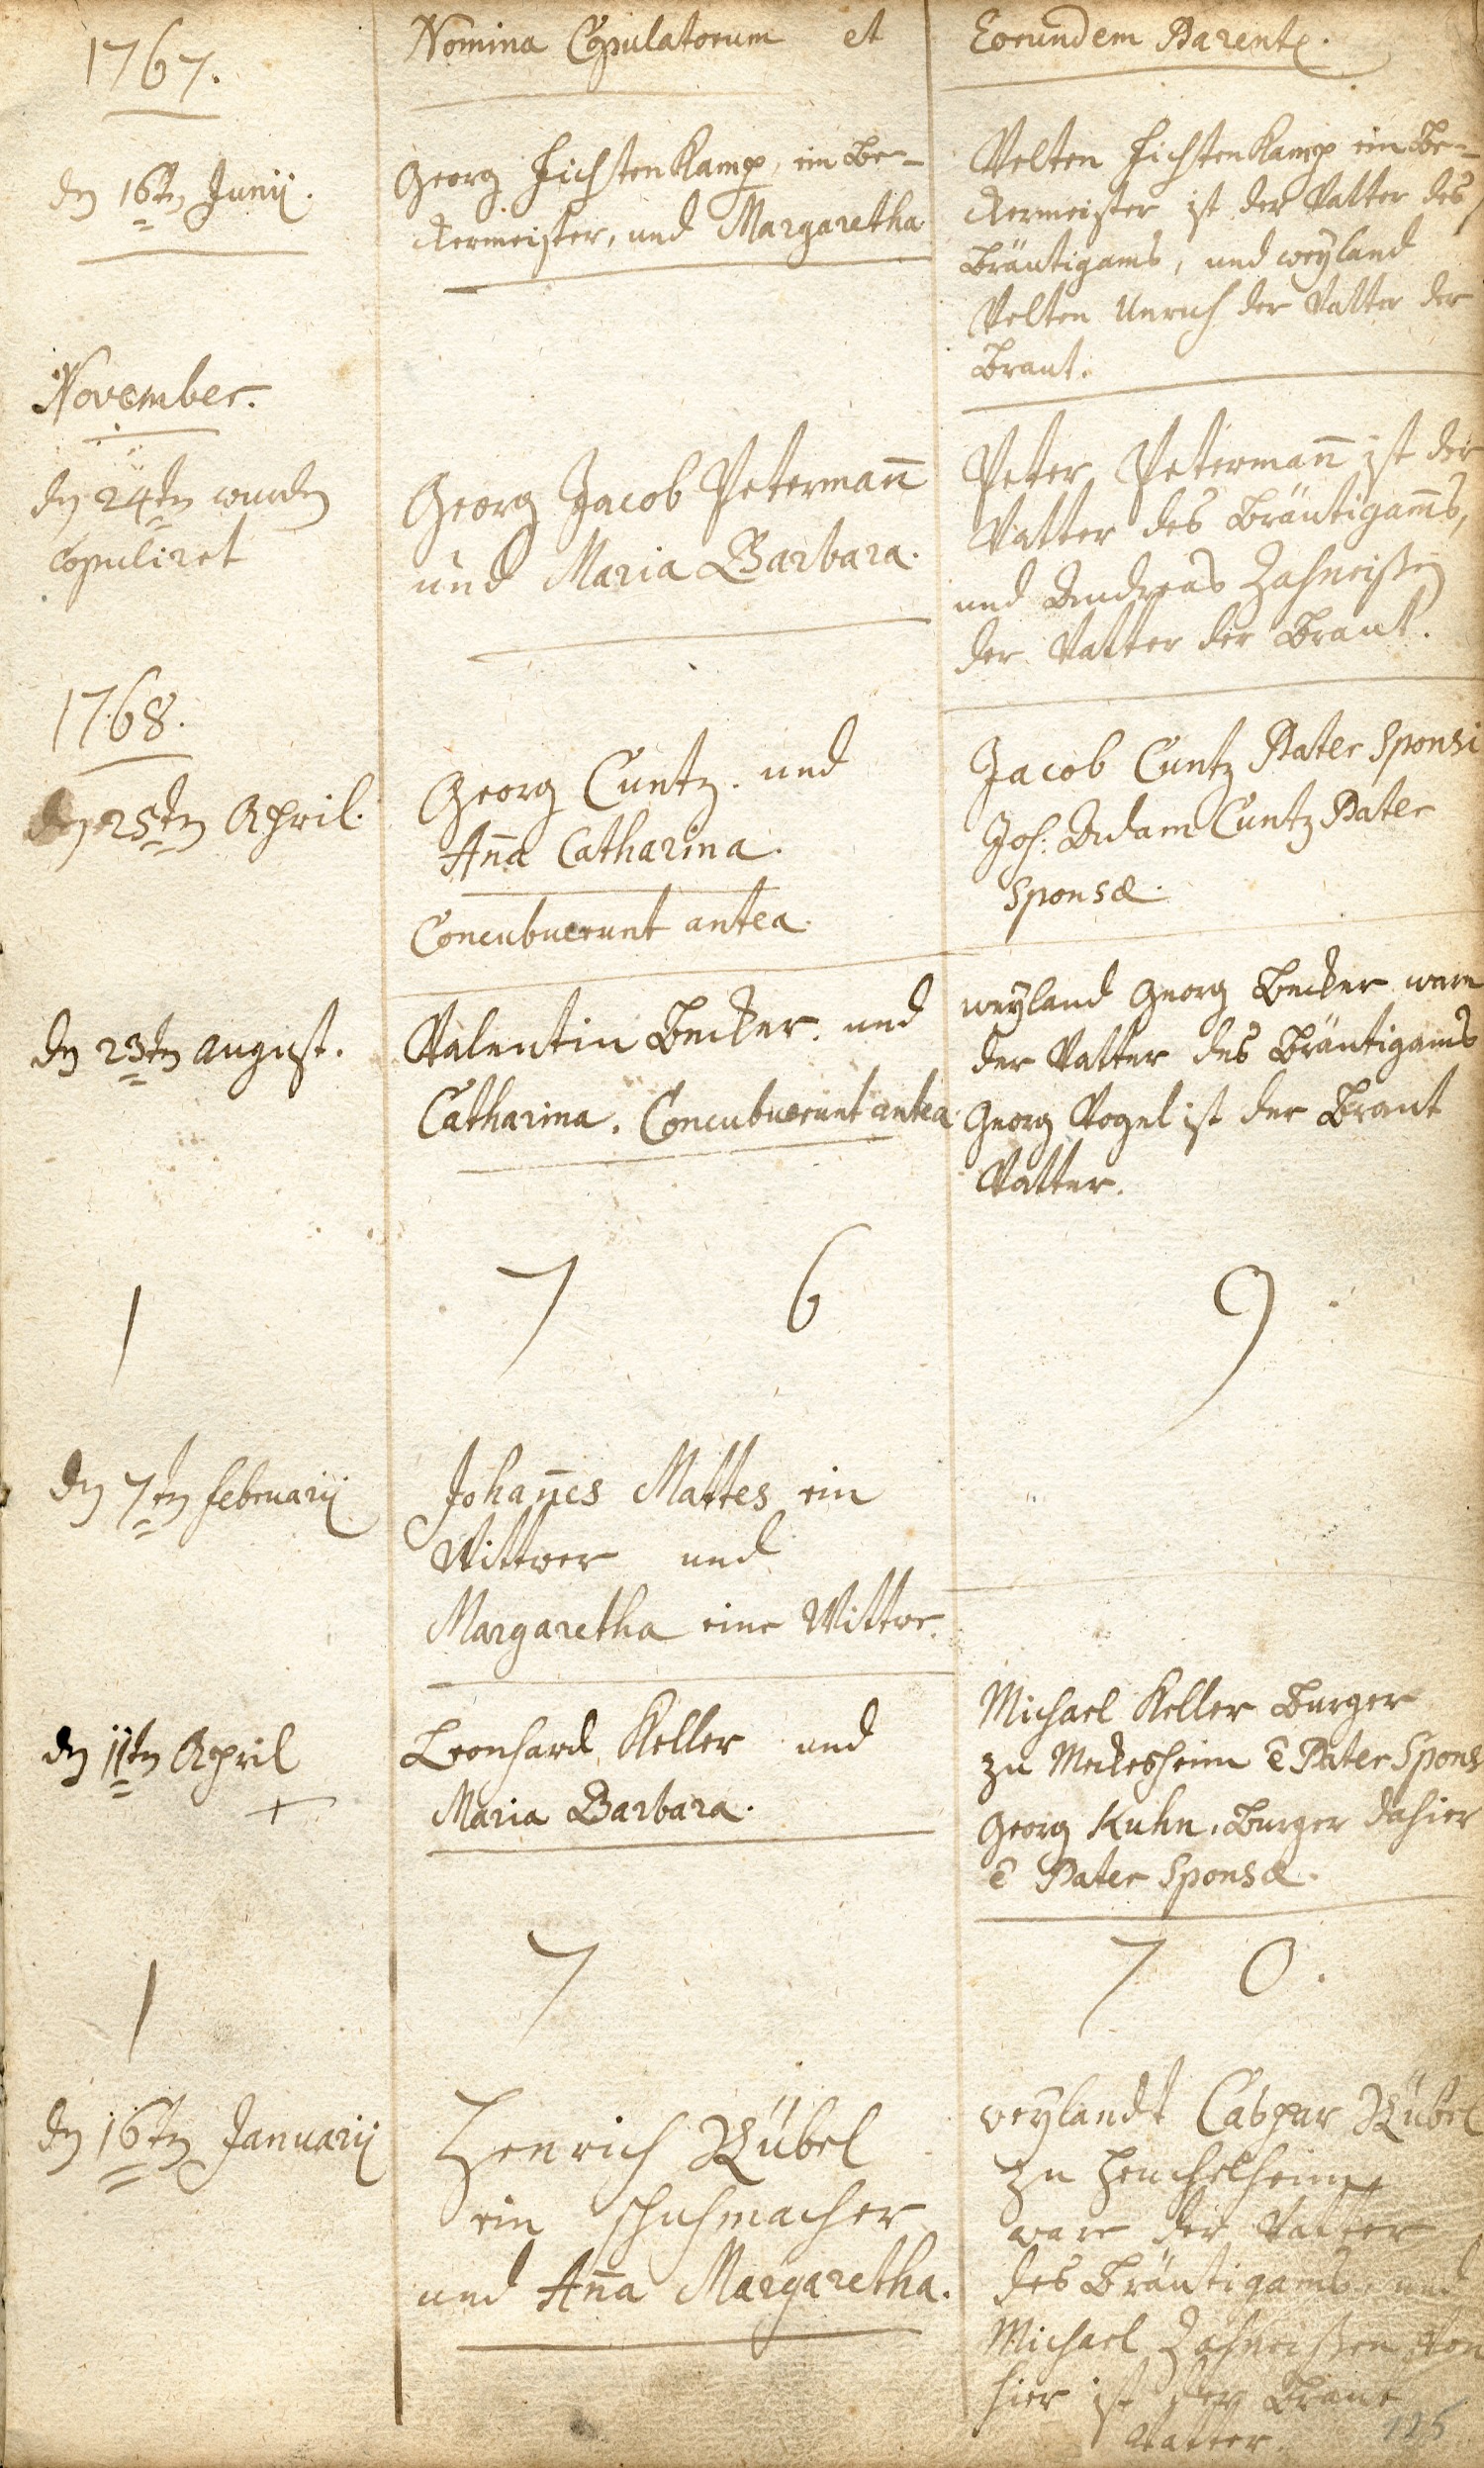 1767.
Nomina Copulatorum et
Eorundem Parent.
dn 16tn Junij.
Georg Fichtenkamp, ein Be-
ckermeister, und Margaretha
Velten Fichtenkamp ein Be-
ckermeister ist der Vatter des
Bräutigams, und weyland
Velten Unruh der Vatter der
Braut.
November.
dn 24tn wurdn
copuliret
Georg Jacob Petermañ
und Maria Barbara.
Peter Petermañ ist der
Vatter des Bräutigams,
und Andreas Zahneißen
der Vatter der Braut.
1768.
dn 25tn April.
Georg Cuntz. und
Aña Catharina.
Concubuerunt antea.
Jacob Cuntz Pater Sponsi
Joh: Adam Cuntz Pater
Sponsæ.
dn 23tn August.
Valentin Becker. und
Catharina. Concubuerunt antea.
weyland Georg Becker ware
der Vatter des Bräutigams
Georg Vogel ist der Braut
Vatter.
1 7 6 9
dn 7tn Februarij
Johañes Mattes ein
Wittwer und
Margaretha eine Wittwe.
dn 11tn April
+
Leonhard Keller und
Maria Barbara.
Michael Keller Burger
zu Meckesheim ē Pater Spons
Georg Kuhn, Burger dahier
ē Pater Sponsæ.
1 7 7 0.
dn 16tn Januarij
Henrich Rübel
ein Schuhmacher
und Aña Margaretha.
weylandt Caspar Rübel
zu Heuchelheim
ware der Vatter
des Bräutigams, und
Michael Zahneißen von
hier ist der Braut
Vatter.
125